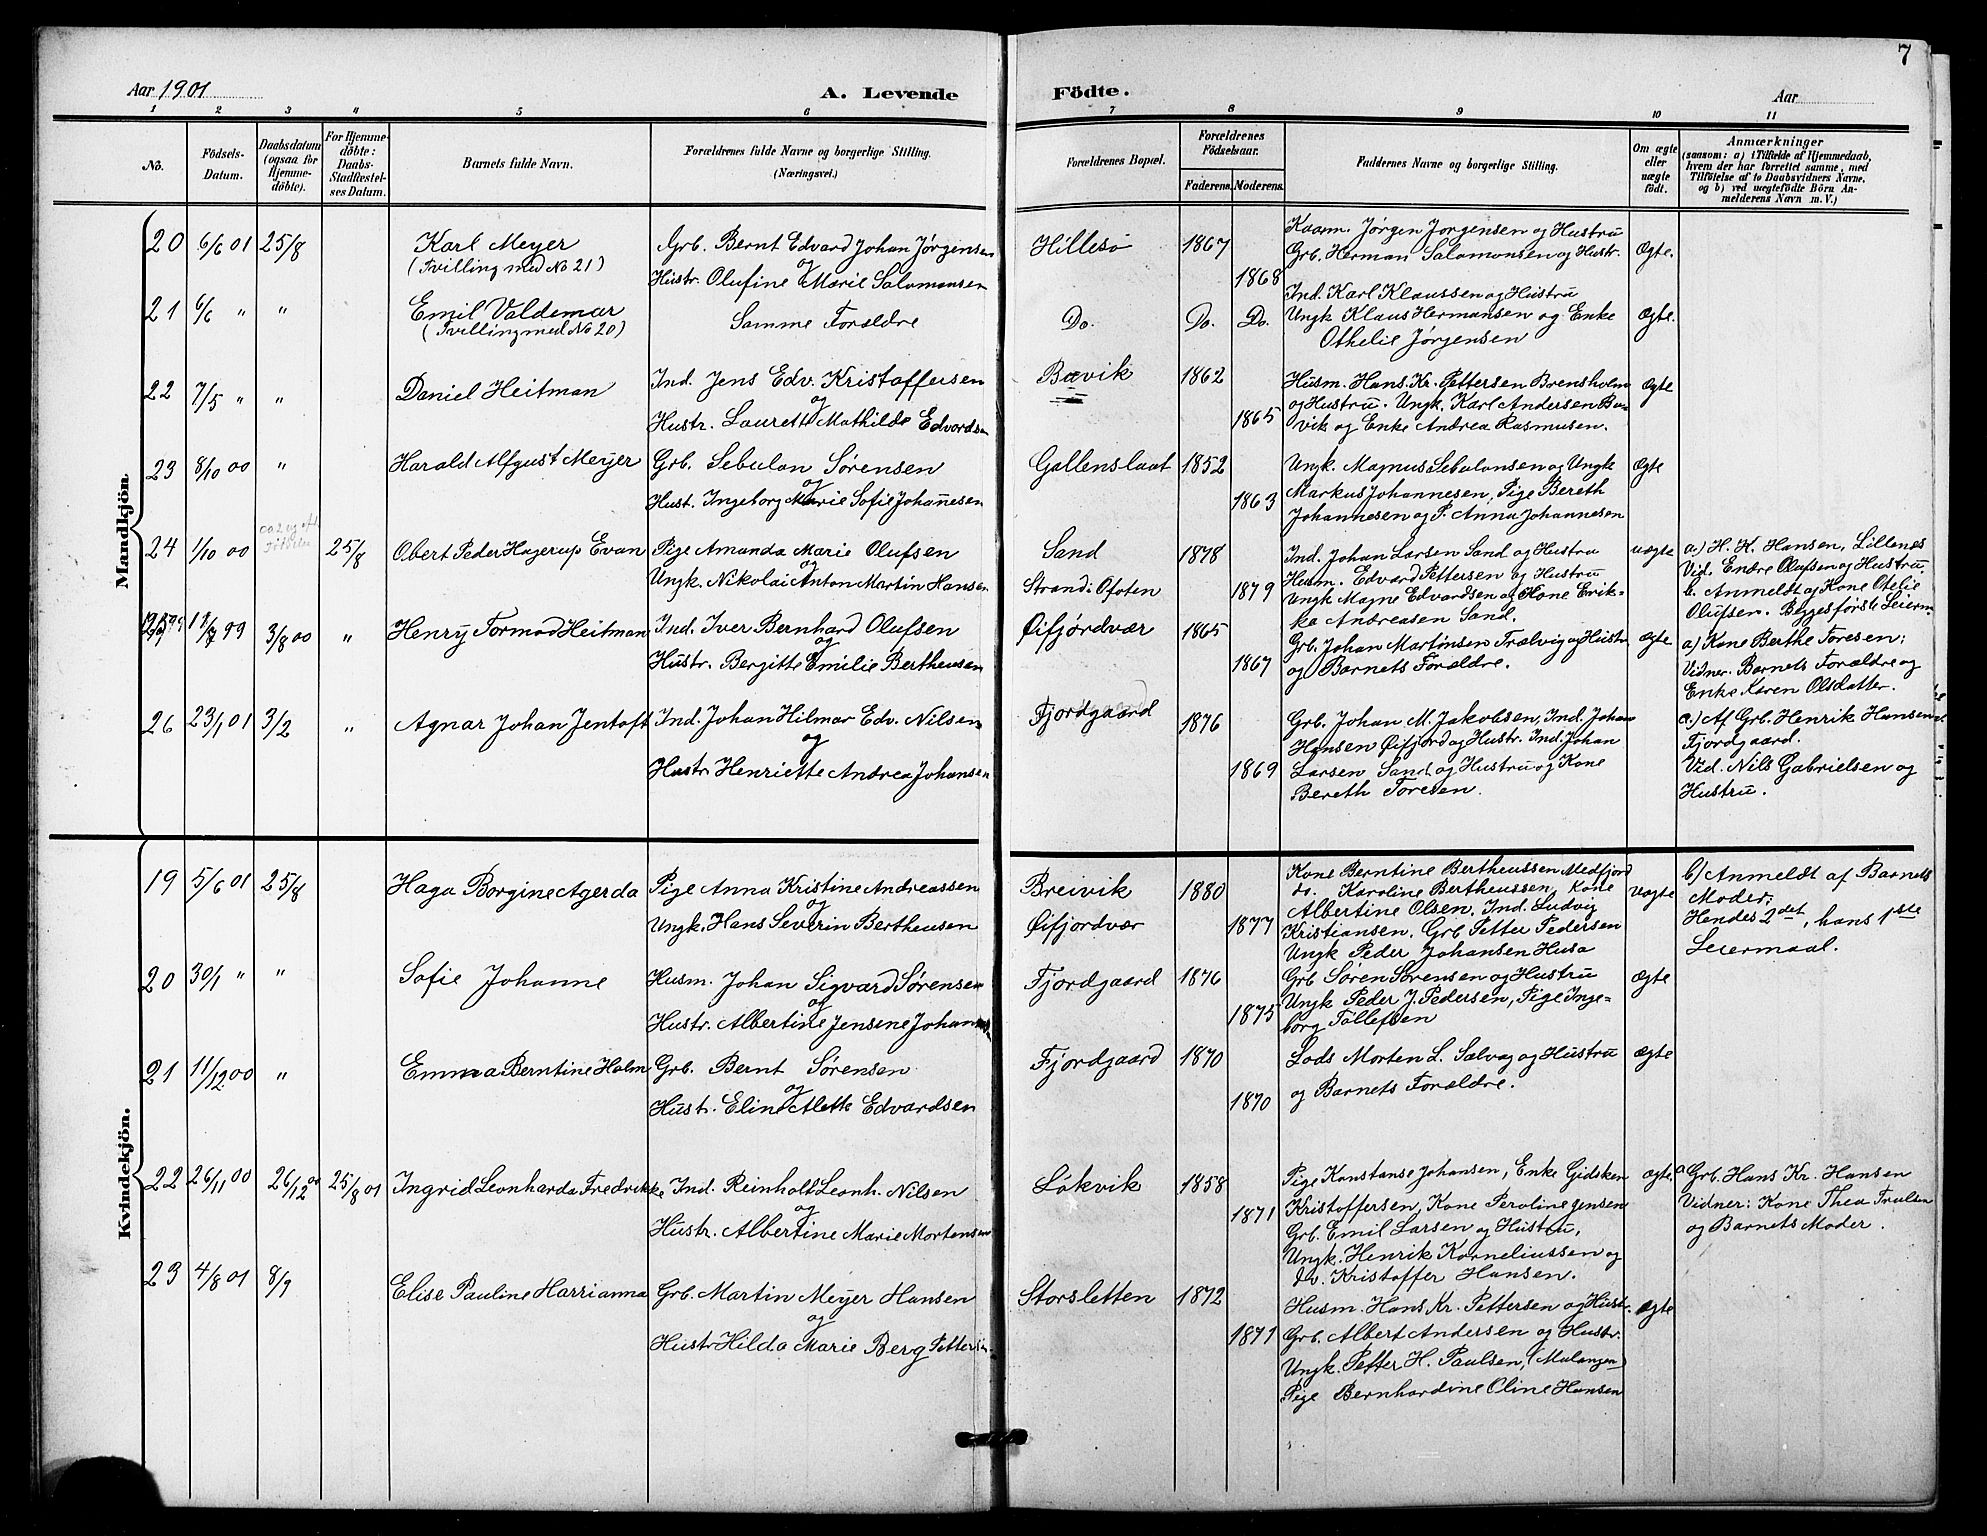 7
Aar 1901
A. Levende Födte.
Aar
1 2 3 4 5 6 7 8 9 10 11
No.
Födsels-Datum.
Daabsdatum (ogsaa for Hjemme-döbte).
For Hjemme-döbte: Daabs-Stadfæstel-ses Datum.
Barnets fulde Navn.
Forældrenes fulde Navne og borgerlige Stilling.
(Næringsvei.)
Forældrenes Bopæl.
Forældrenes Födselsaar.
Faderens. Moderens.
Faddernes Navne og borgerlige Stilling.
Om ægte eller uægte födt.
Anmærkninger
(saasom: a) i Tilfælde af Hjemmedaab,
hvem der har forrettet samme, med
Tilföielse af to Daabsvidners Navne,
og b) ved uægtefödte Börn An-
melderens Navn m.V.)
Mandkjön.
20 6/6 01 25/8 Karl Meyer
(Tvilling med No 21)
Grb. Bernt Edvard Johan Jørgensen
og
Hustr. Olufine Marie Salomonsen
Hillesø 1867 1868
Kaarm. Jørgen Jørgensen og Hustru
Grb. Herman Salomonsen og Hustr.
Ind. Karl Klaussen og Hustru
Ægte.
21 6/6 " " Emil Valdemar
(Tvilling med No 20)
Samme Forældre
Do. Do. Do.
Ungk Klaus Hermansen og Enke
Othelie Jørgensen
Ægte.
22 7/5 " " Daniel Heitman
Ind. Jens Edv. Kristoffersen
og
Hustr. Laurette Mathilde Edvardsen
Bævik 1862 1865
Husm. Hans Kr. Pettersen Brensholm
og Hustru. Ungk. Karl Andersen Bæ-
vik og Enke Andrea Rasmusen.
Ægte
23 8/10 00 " Harald Alfgust Meyer
Grb. Sebulon Sørensen
og
Hust. Ingeborg Marie Sofie Johannesen
Gallenslaat 1852 1863
Ungk. Magnus Sebulonsen og Ungk
Markus Johannesen, Pige Bereth
Johannesen og P. Anna Johannesen
Ægte
24 1/10 00 25/8 Obert Peder Hagerup Evan
Pige Amanda Marie Olufsen
og
Ungk. Nikolai Anton Martin Hansen
Sand 1878
Strand i Ofoten 1879
Ind. Johan Larsen Sand og Hustru
Husm. Edvard Pettersen og Hustru
Ungk Magne Edvardsen og Kone Erik-
ka Andreasen Sand.
uægte
a.) H. K. Hansen, Lillenes
Vid. Endre Olufsen og Hustru.
b. Anmeldt af Kone Otelie
Olufsen. Begges første Leierm.
99 3/8 00 " Henry Tormod Heitman
Ind. Iver Bernhard Olufsen
og
Hustr. Bergitte Emilie Bertheusen
Øifjordvær 1865 1867
Grb. Johan Martinsen Trælvig og Hustr.
og Barnets Forældre.
Ægte
a) Kone Berthe Toresen:
Vidner. Barnets Forældre og
Enke Karen Olsdatter.
26 23/1 01 3/2 " Agnar Johan Jentoft
Ind. Johan Hilmar Edv. Nilsen
og
Hustr. Henriette Andrea Johansen
Fjordgaard 1876 1869
Grb. Johan M. Jakobsen, Ind. Johan
Hansen Øifjord og Hustr. Ind. Johan
Larsen Sand og Hustru og Kone
Bereth Toresen.
a.) Af Grb. Henrik Hansen
Fjordgaard.
Vid. Nils Gabrielsen og
Hustru.
Kvindekjön.
19 5/6 01 25/8 Haga Borgine Agerda
Pige Anna Kristine Andreassen
og
Ungk. Hans Severin Bertheusen
Breivik 1880
Øifjordvær 1877
Kone Berntine Bertheussen Medfjord
do. Karoline Bertheussen, Kone
Albertine Olsen. Ind. Ludvig
Kristiansen. Grb Petter Pedersen
Ungk Peder Johansen Husø
Uægte
b) Anmeldt af Barnets
Moder;
Hendes 2det, hans 1ste
Leiermaal.
20 30/1 " " Sofie Johanne
Husm. Johan Sigvard Sørensen
og
Hustr. Albertine Jensine
Fjordgaard 1876 1875
Grb Søren Sørensen og Hustru
Ungk Peder J. Pedersen, Pige Inge-
borg Tollefsen
Ægte
21 11/12 00 " Emma Berntine Holm
Grb. Bernt Sørensen
og
Hustr. Eline Alette Edvardsen
Fjordgaard 1870 1870
Lods Morten L. Selvaag og Hustru
og Barnets Forældre.
Ægte
22 26/11 00 26/12 00 25/8 01 Ingrid Leonharda Fredrikke
Ind. Reinholt Leonh. Nilsen
og
Hustr. Albertine Marie Mortensen
Løkvik 1858 1871
Pige Konstanse Johansen, Enke Gidsken
Kristoffersen, Kone Peroline Jensen
Grb. Emil Larsen og Hustru,
Ungk. Henrik Korneliussen og
do. Kristoffer Hansen.
Ægte.
a Grb. Hans Kr. Hansen
Vidner: Kone Thea Trulsen
og Barnets Moder.
23 4/8 01 8/9 Elise Pauline Harrianna
Grb. Martin Meyer Hansen
og
Hustr Hilda Marie Berg Pettersen
Storsletten 1872 1871
Husm. Hans Kr. Pettersen og Hustr.
Grb. Albert Andersen og Hustr.
Ungk. Petter H. Paulsen, (Malangen)
Pige Bernhardine Oline Hansen
Ægte